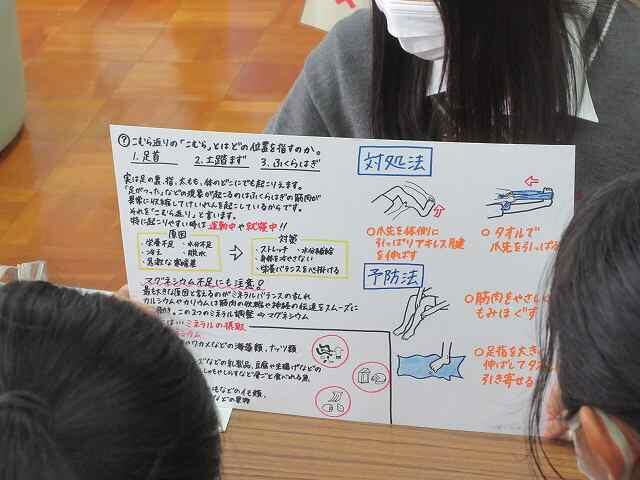 ⑦こむら返りの「こむら」とはどの位置を指すのか。
1. 足首 2. 土踏まず 3. ふくらはぎ
実は足の裏、指、太もも、体のどこにでも起こりえます。
「足がつった」などの現象が起こるのはふくらはぎの筋肉が
異常に収縮してけいれんを起こしているからです。
それを"こむら返り"と言います。
特に起こりやすい時は運動中や就寝中!!
原因
・栄養不足 ・水分不足
・冷え ・脱水
・急激な寒暖差
⇨
対策
・ストレッチ ・水分補給
・身体を冷やさない
・栄養バランスを心掛ける
マグネシウム不足にも注意!
最も大きな原因と言えるのがミネラルバランスの乱れ
カルシウムやカリウムは筋肉の収縮や神経の伝達をスムーズに
この2つのミネラル調整⇒マグネシウム
ミネラルの摂取
ワカメなどの海藻類、ナッツ類
などの乳製品、豆腐や生揚げなどの
しゃもやしらすなど骨ごと食べれる魚
などのイモ類、
などの果物
対処法
○爪先を体側に
引っぱりアキレス腱
を伸ばす
○タオルで
爪先を引っぱる
予防法
○筋肉をやさし
もみほぐす
○足指を大き
伸ばしてタオ
引き寄せる